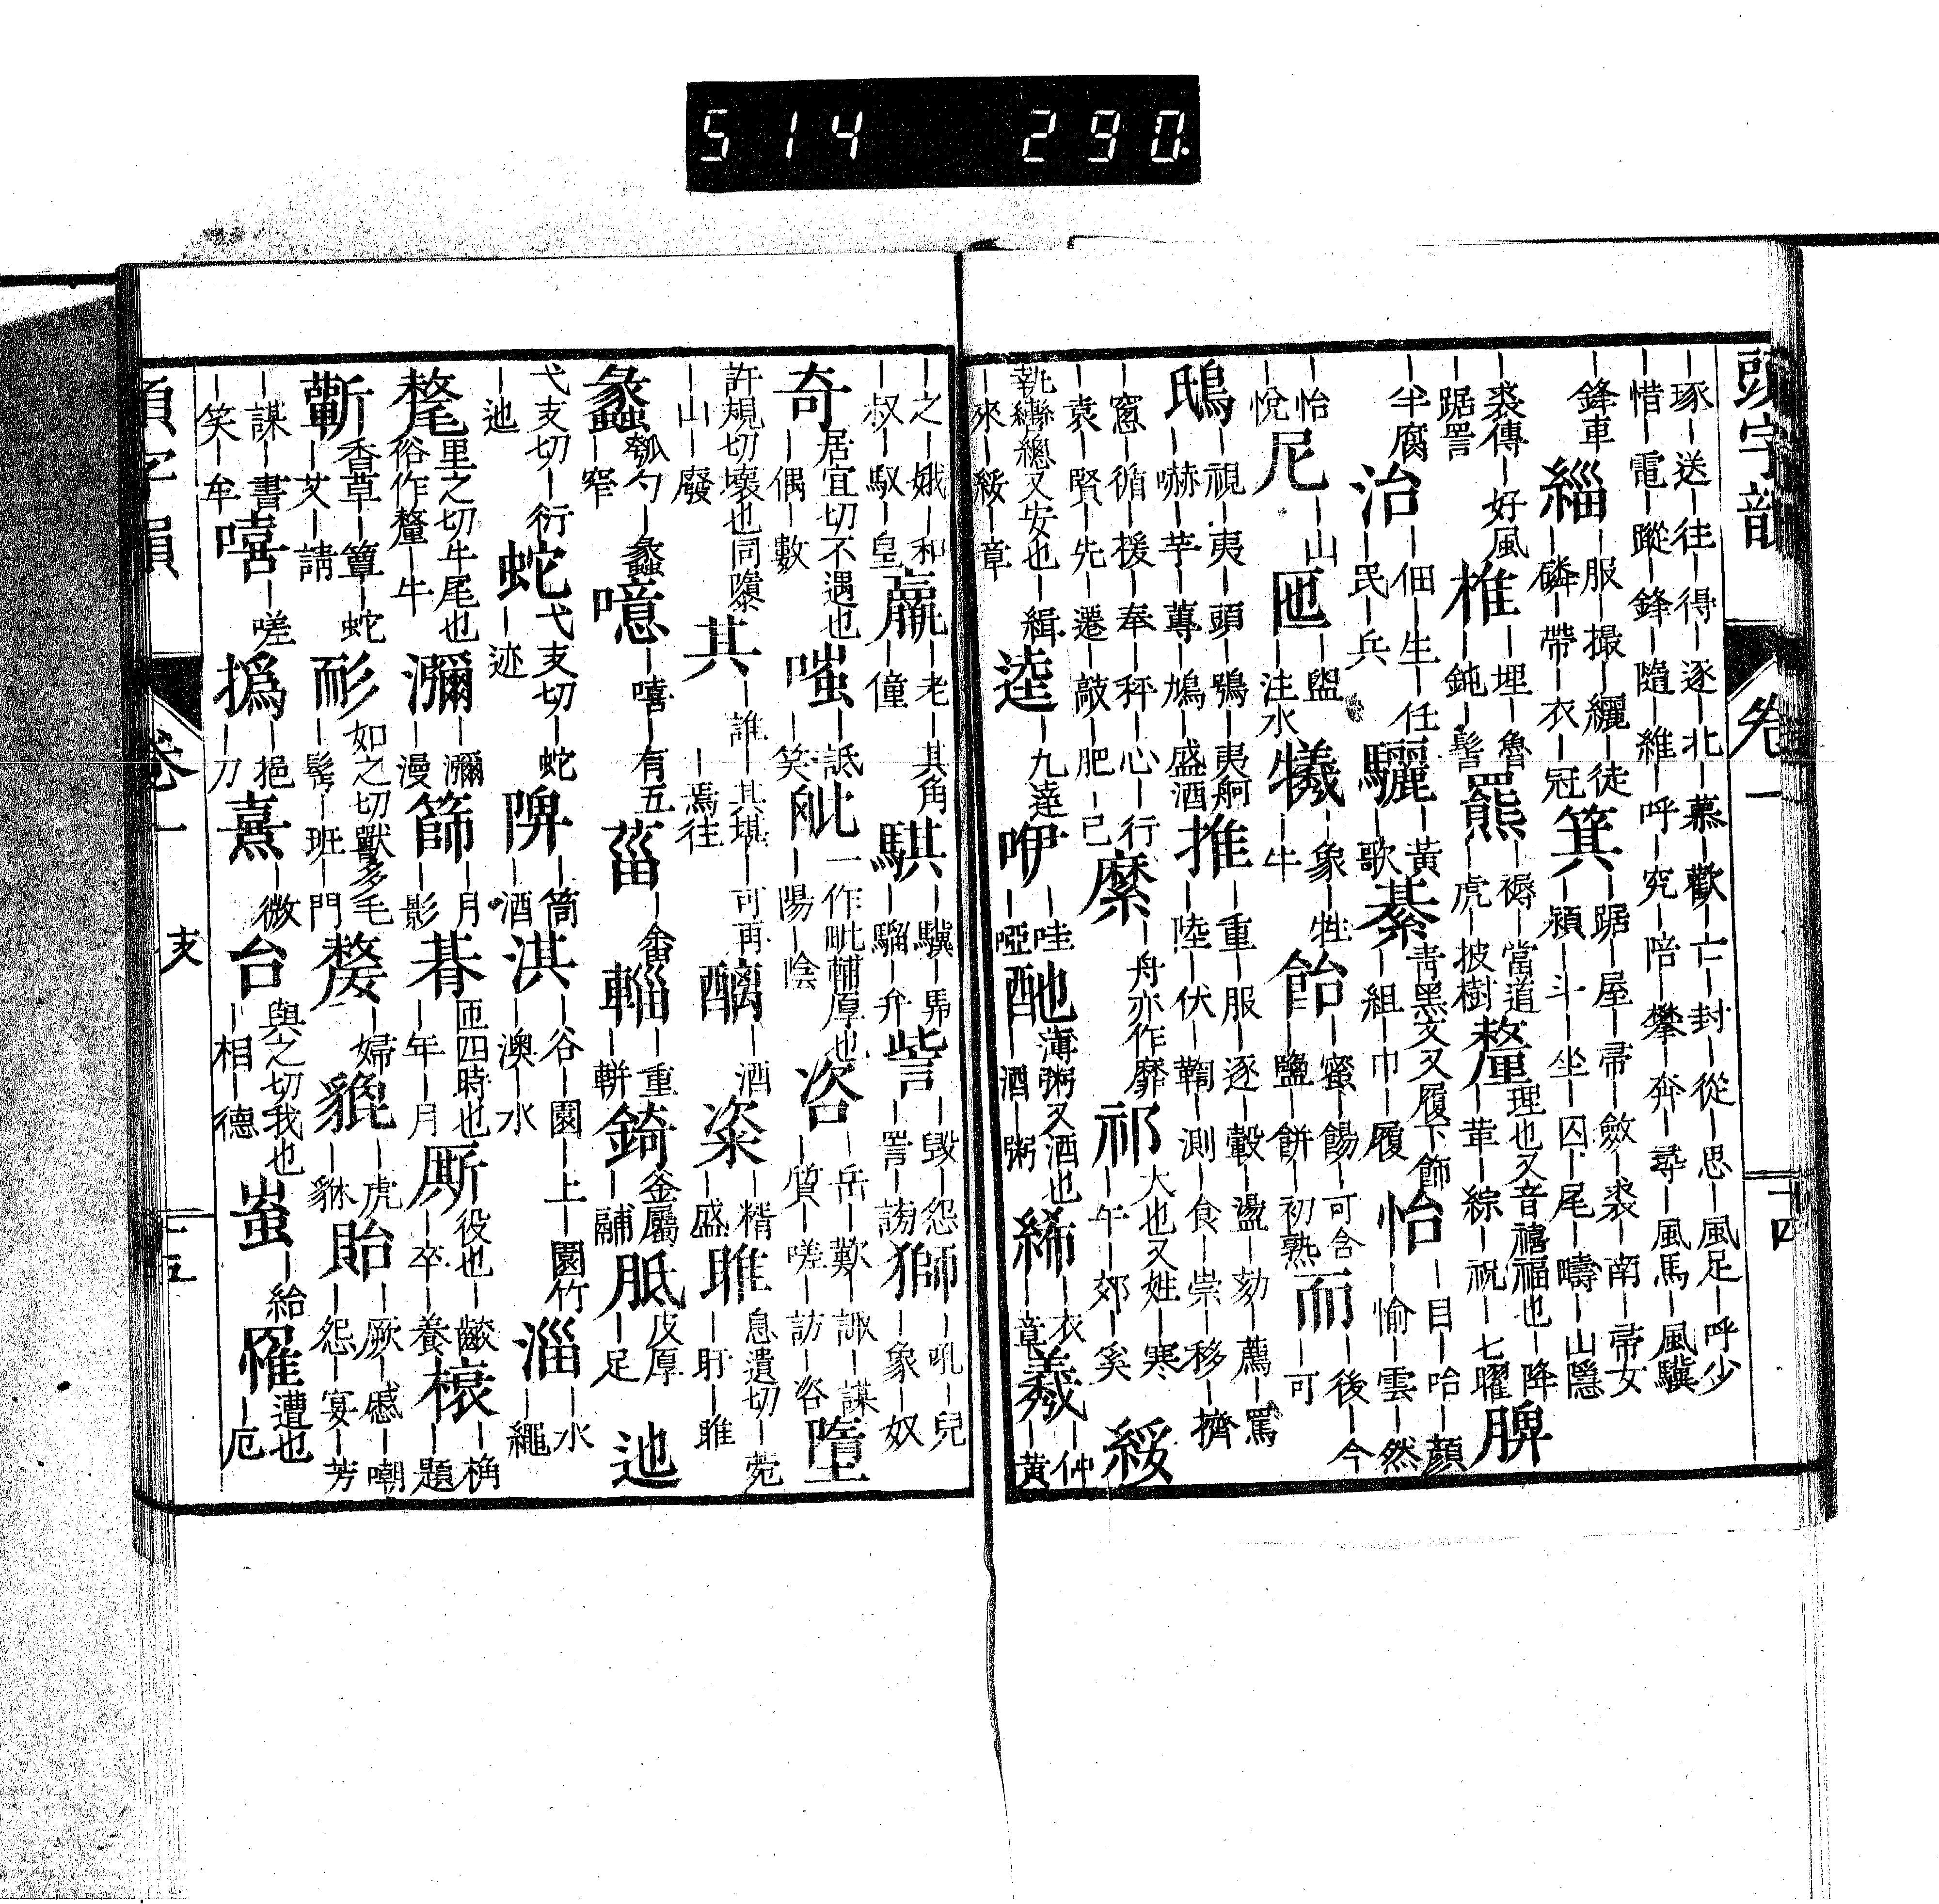 514 290.
頭字韻 卷一 十四
琢｜送｜往｜得｜逐｜北｜慕｜歡｜亡｜封｜從｜思｜風足｜呼少
惜｜電｜蹤｜鋒｜隨｜維｜呼｜究｜陪｜攀｜奔｜尋｜風馬｜風驥
｜鋒車 緇｜服｜撮｜纚｜徒 箕｜踞｜屋｜帚｜斂｜裘｜南｜帚女
｜磷｜帶｜衣｜冠 ｜潁｜斗｜坐｜囚｜尾｜疇｜山隱
｜裘傳｜好風 椎｜埋｜魯 羆｜褥｜當道 釐理也又音禧福也｜降
｜踞詈 ｜鈍｜髻 ｜虎｜披樹 ｜華｜綜｜祝｜七曜 脾
｜半腐 治｜佃｜生｜任 驪｜黃 綦青黑文又履下飾 怡｜目｜哈｜顏
｜民｜兵 ｜歌 ｜組｜巾｜履 ｜愉｜雲｜然
｜怡 尼｜山 匜｜盥 犧｜象｜牲 飴｜蜜｜餳｜可含 而｜後｜今
｜悅 ｜注水 ｜牛 ｜鹽｜餅｜初熟 ｜可
鴟｜視｜夷｜頭｜鴞｜夷舸 推｜重｜服｜逐｜轂｜盪｜劾｜薦｜罵
｜嚇｜芋｜蓴｜鳩｜盛酒 ｜陸｜伏｜鞫｜測｜食｜崇｜移｜擠
｜窻｜循｜援｜奉｜秤｜心｜行 縻｜舟亦作靡 祁大也又姓｜寒 綏
｜袁｜賢｜先｜遷｜敲｜肥｜己 ｜午｜郊｜奚
執轡總又安也｜緝 逵｜九達 咿｜哇 酏薄粥又酒也 絺｜衣 羲｜仲
｜來｜綏｜章 ｜啞 ｜酒｜粥 ｜章 ｜黃
｜之｜娥｜和 羸｜老｜其角 騏｜驥｜馬 訾｜毀｜怨 獅｜吼｜兒
｜叔｜馭｜皇 ｜僮 ｜騮｜弁 ｜詈｜謗 ｜象｜奴
奇居宜切不遇也 嗤｜詆 毗一作毗輔厚也 咨｜岳｜歎｜諏｜謀 隳
｜偶｜數 ｜笑 ｜陽｜陰 ｜質｜嗟｜訪｜咨
許規切壞也同隳 其｜誰｜其琪｜可再 醨｜酒 粢｜糈 睢息遺切｜菟
｜山｜廢 ｜焉往 ｜盛 ｜盱｜睢
蠡瓠勺｜蠡 噫｜嘻｜有五 菑｜畬 輜｜重 錡釜屬 胝皮厚 迤
｜窄 ｜輧 ｜鬴 ｜足
弋支切｜行 蛇弋支切｜蛇 陴｜筒 淇｜谷｜園｜上｜園竹 淄｜水
｜迆 ｜迹 ｜酒 ｜澳｜水 ｜繩
犛里之切牛尾也 瀰｜瀰 篩｜月 朞匝四時也 厮役也｜㱔 榱｜桷
俗作犛｜牛 ｜漫 ｜影 ｜年｜月 ｜卒｜養 ｜題
蘄香草｜簟｜蛇 耏如之切獸多毛 嫠｜婦 貔｜虎 貽｜厥｜慼｜嘲
｜艾｜請 ｜髵｜班｜門 ｜貅 ｜怨｜宴｜芳
｜謀｜書 嘻｜嗟 撝｜挹 熹｜微 台與之切我也 蚩｜給 罹遭也
｜笑｜牟 ｜刀 ｜相｜德 ｜厄
頭字韻 卷一 支 十五